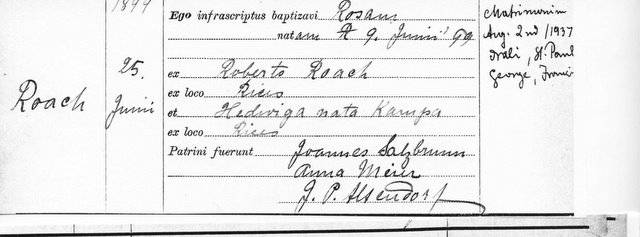 1899
Ego infrascriptus baptizavi Rosam
natam A 9. Junii '99
25.
Junii
Roach
ex Roberto Roach
ex loco Rices
et Hedwiga nata Kampa
ex loco Rices
Patrini fuerunt Joannes Salzbrunn
Anna Meier
J. P. Alsendorf
Matrimonium
Aug. 2nd/1937
St. Paul
George, Francis